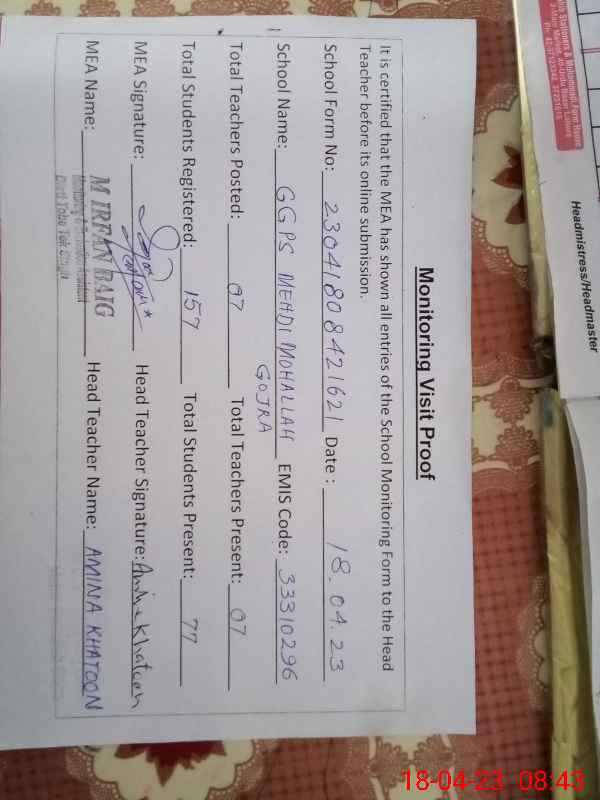 Monitoring Visit Proof
It is certified that the MEA has shown all entries of the School Monitoring Form to the Head
Teacher before its online submission.
School Form No: 23041808421621 Date : 18.04.23
School Name: GGPS MEHDI MOHALLAH EMIS Code: 33310296
GOJRA
Total Teachers Posted: 07 Total Teachers Present: 07
Total Students Registered: 157 Total Students Present: 77
MEA Signature: Head Teacher Signature: Amina Khatoon
MEA Name: M IRFAN BAIG Head Teacher Name: AMINA KHATOON
Monitoring & Evaluation Assistant
Distt Toba Tek Singh
Headmistress/Headmaster
18-04-23 08:43